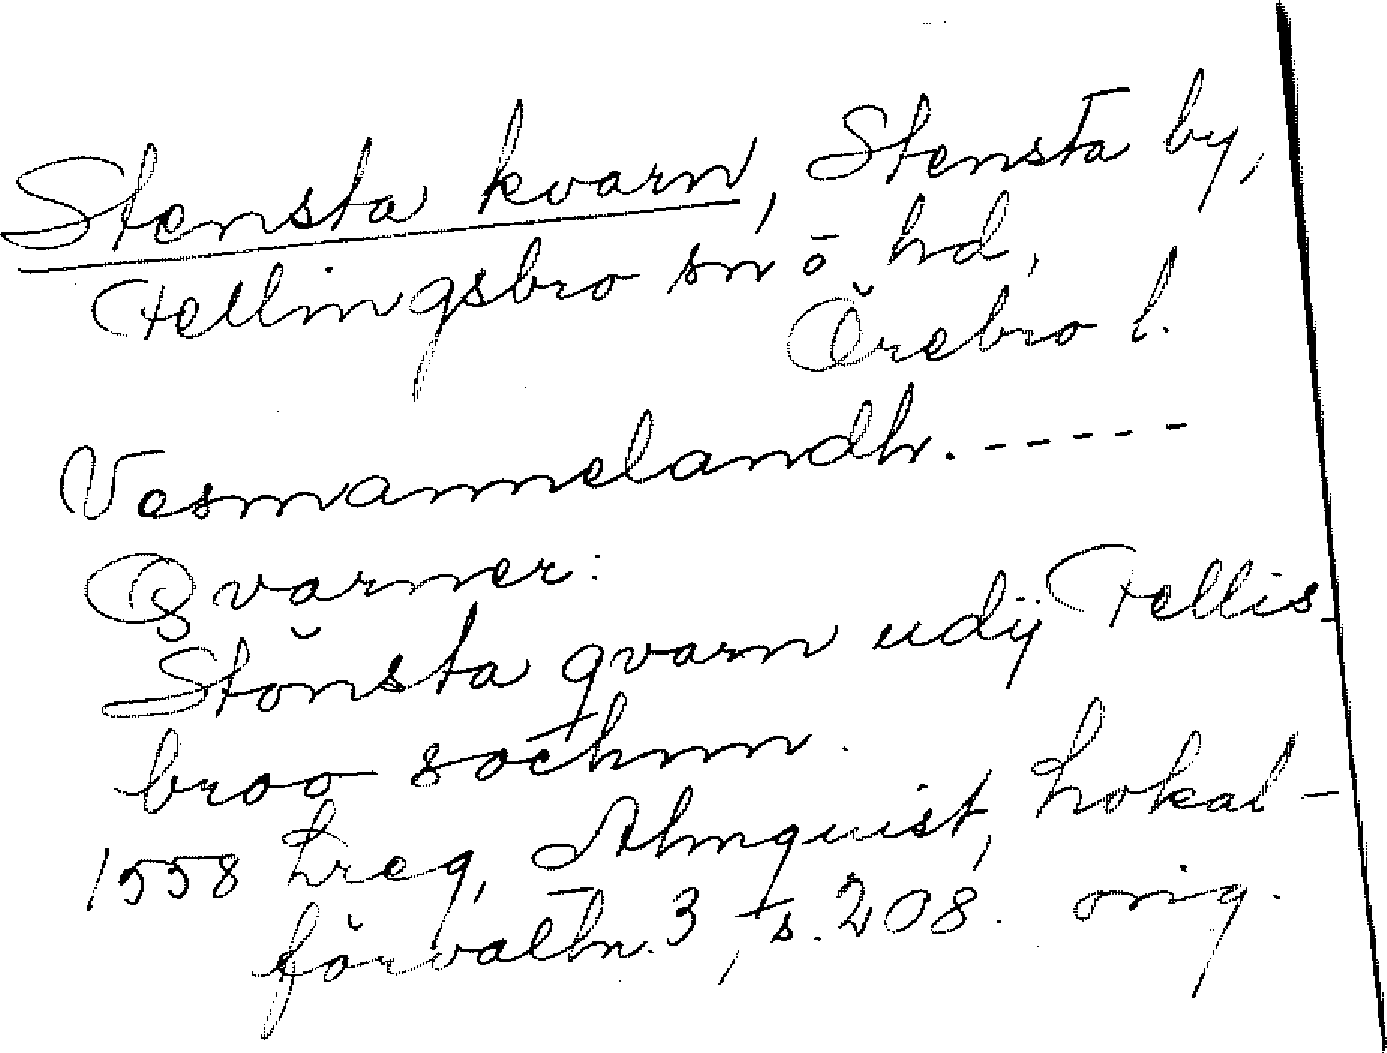 Stensta kvarn, Stensta by,
Fellingsbro sn o hd,
Örebro l.
Vesmannelandh. - - - - -
Qvarner:
Stönsta qvarn udij Fellis-
broo sochnn.
1558 Lreg, Almquist, Lokal-
förvaltn. 3, s. 208. orig.